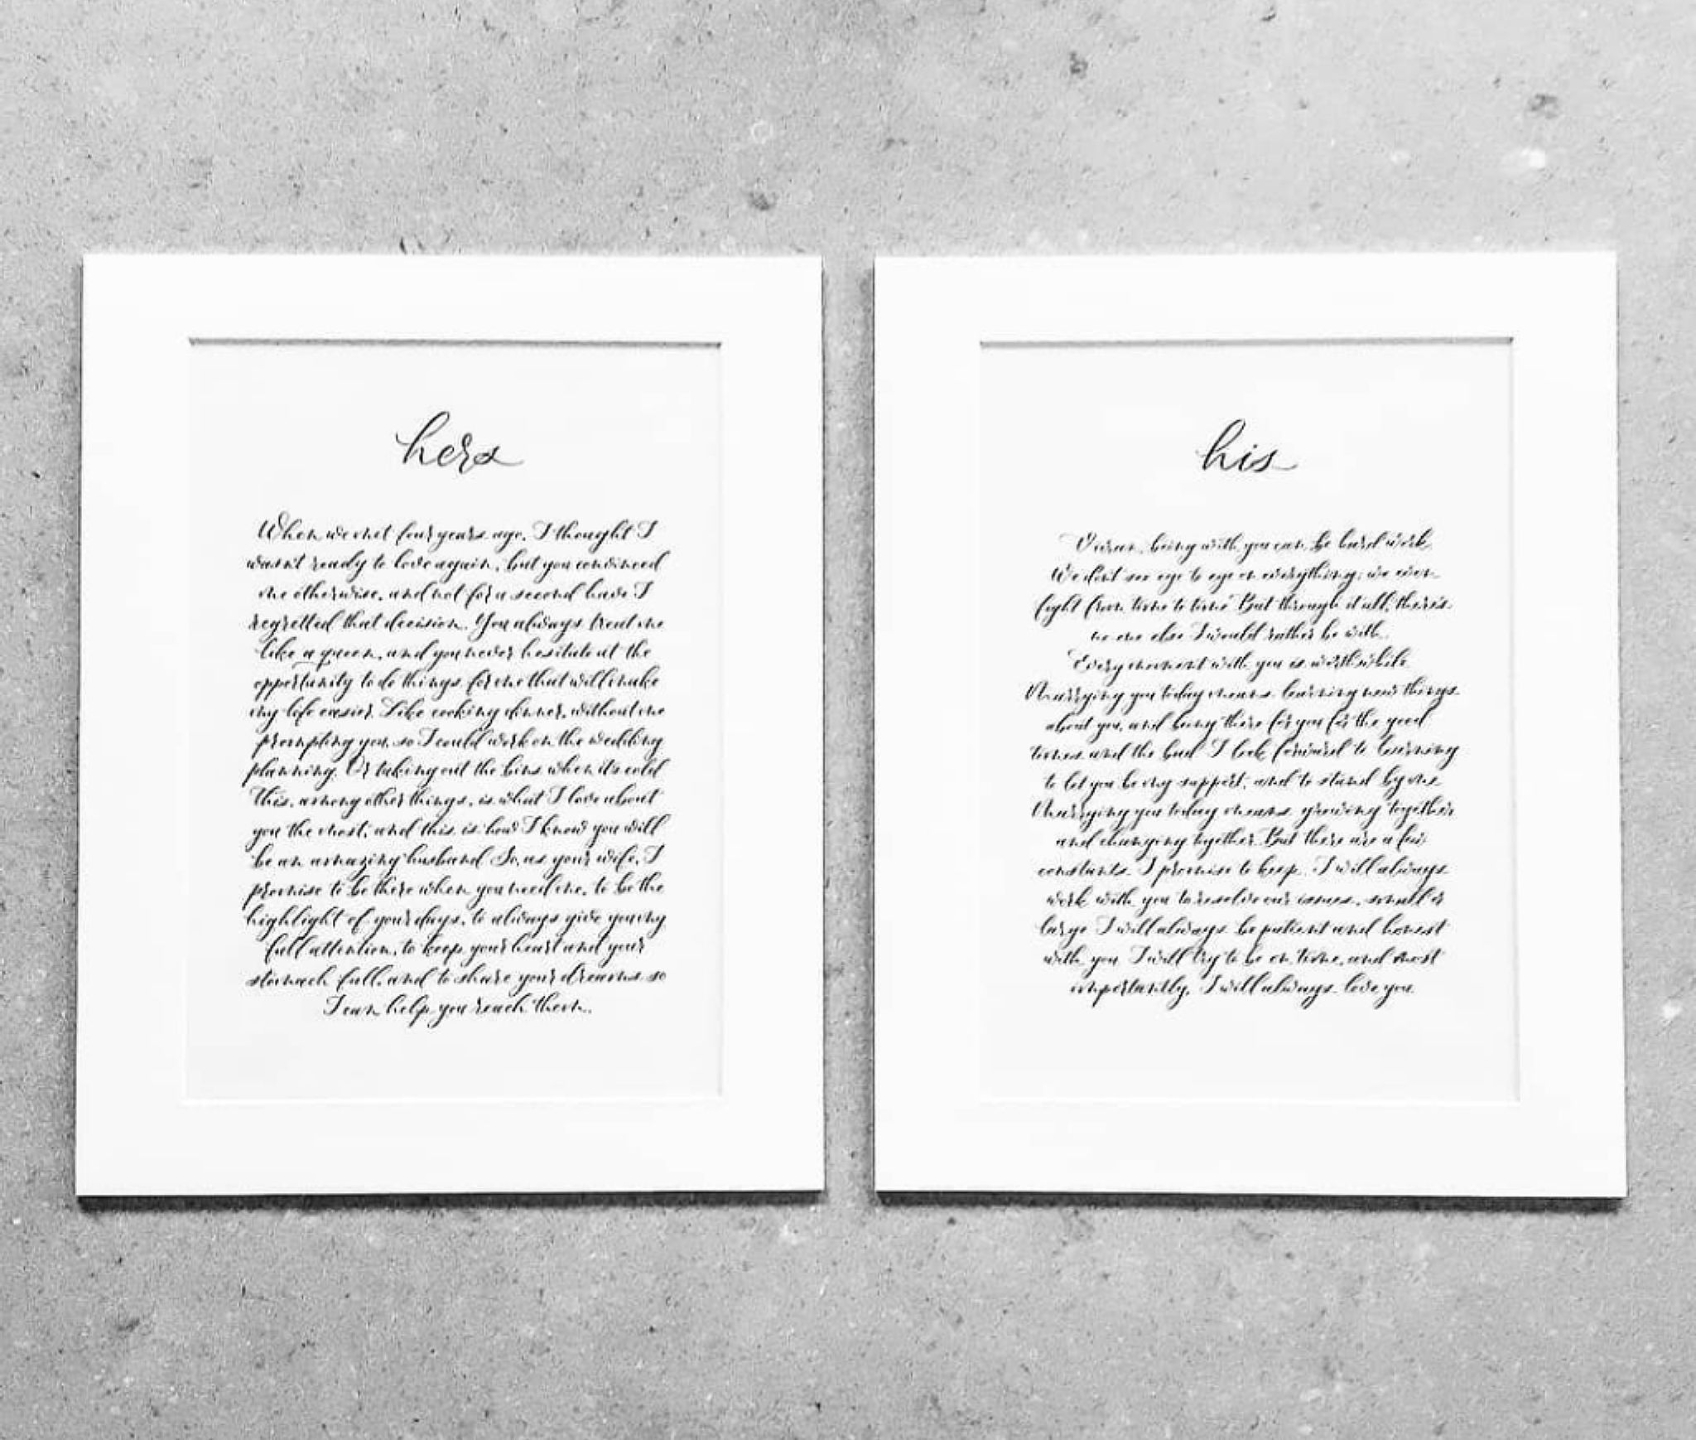 hers
When we met four years ago, I thought I
wasn't ready to love again, but you convinced
me otherwise, and not for a second have I
regretted that decision. You always treat me
like a queen, and you never hesitate at the
opportunity to do things for me that will make
my life easier. Like cooking dinner, without me
prompting you, so I could work on the wedding
planning. Or taking out the bins when its cold
This, among other things, is what I love about
you the most, and this is how I know you will
be an amazing husband So, as your wife, I
promise to be there when you need me, to be the
highlight of your days, to always give you my
full attention, to keep your heart and your
stomach full, and to share your dreams so
I can help you reach them.
his
being with you can be hard work
We don't see eye to eye on everything; we even
fight from time to time But through it all, there's
no one else I would rather be with.
Every moment with you is worthwhile
Marrying you today means learning new things
about you, and being there for you for the good
times and the bad I look forward to learning
to let you be my support, and to stand by me
Marrying you today means growing together
and changing together But there are a few
constants I promise to keep. I will always
work with you to resolve our issues, small or
large I will always be patient and honest
with you I will try to be on time, and most
importantly, I will always love you